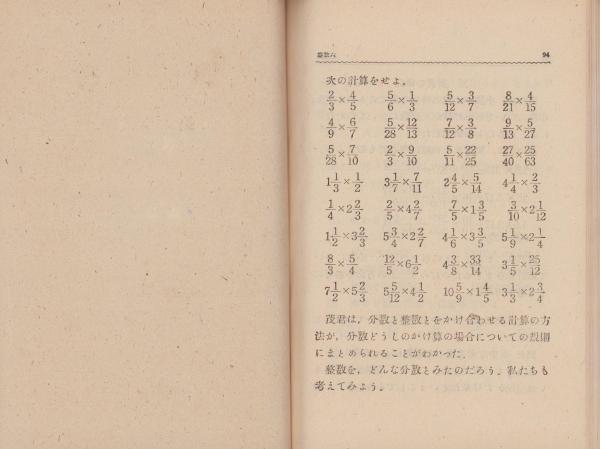 94
次の計算をせよ。
2/3×4/5 5/6×1/3 5/12×3/7 8/21×4/15
4/9×6/7 5/28×12/13 7/12×3/8 9/13×5/27
5/28×7/10 2/3×9/10 5/11×22/25 27/40×25/63
1 1/3×1/2 3 1/7×7/11 2 4/5×5/14 4 1/4×2/3
1/4×2 2/3 2/5×4 2/7 7/5×1 3/5 3/10×2 1/12
1 1/2×3 2/3 5 3/4×2 2/7 4 1/6×3 3/5 5 1/9×2 1/4
8/3×5/4 12/5×6 1/2 4 3/8×33/14 3 1/5×25/12
7 1/2×5 2/3 5 5/12×4 1/2 10 5/9×1 4/5 3 1/3×2 3/4
茂君は，分数と整数とをかけ合わせる計算の方
法が，分数どうしのかけ算の場合についての規則
にまとめられることがわかった。
整数を，どんな分数とみたのだろう。私たちも
考えてみよう。